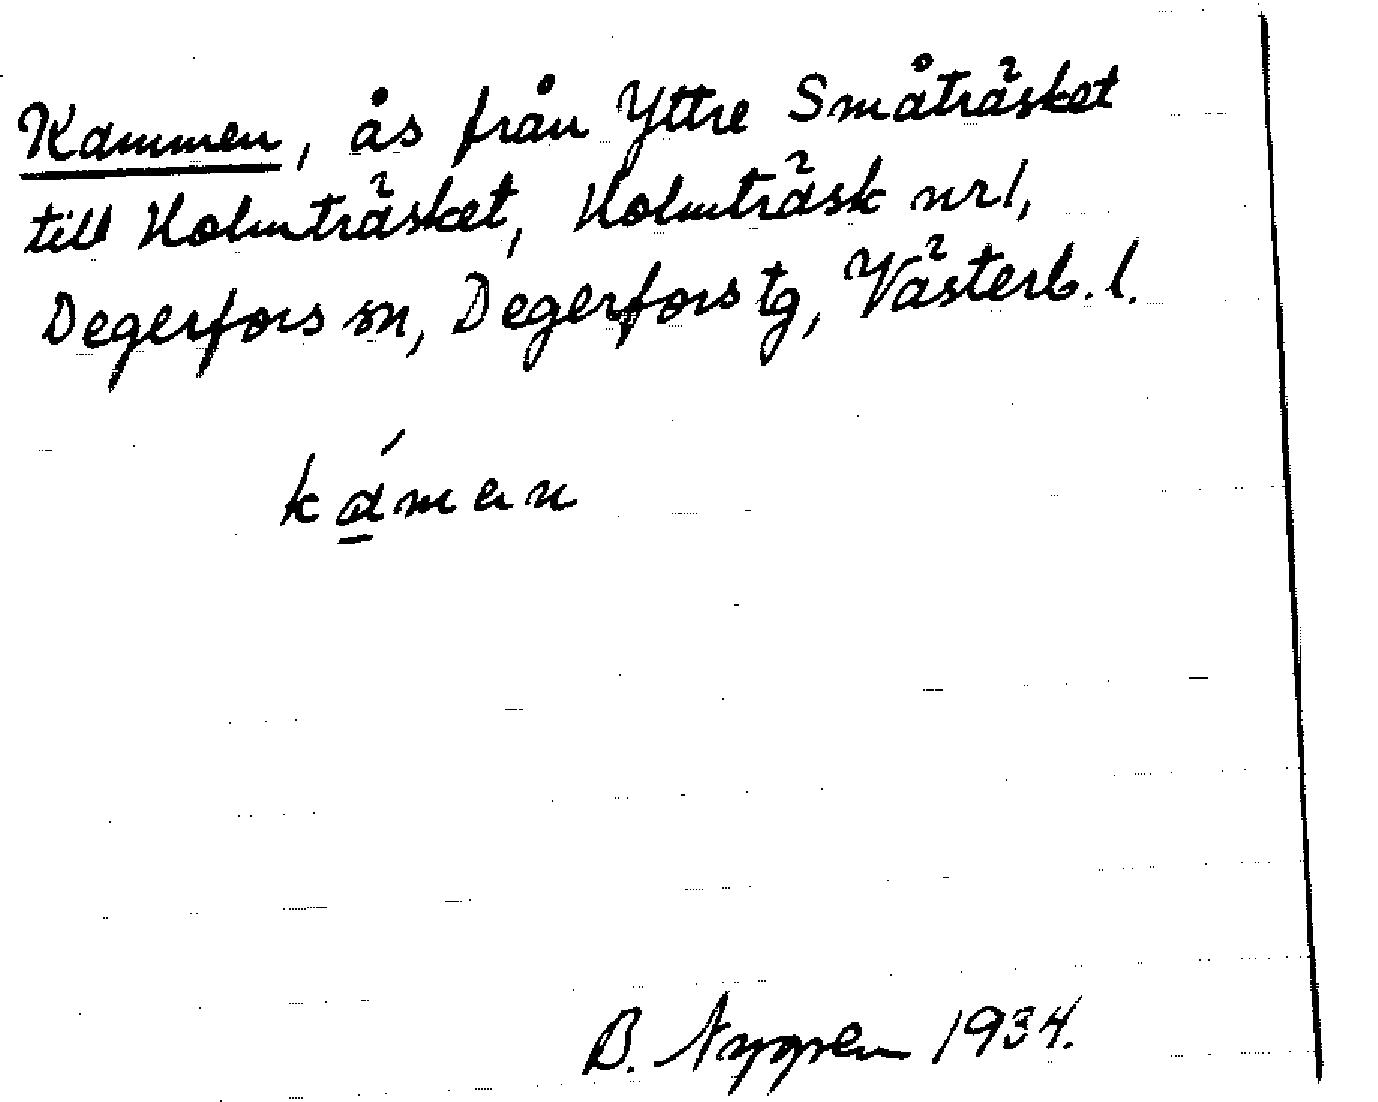 Kammen, ås från Yttre Småträsket
till Holmträsket, Holmträsk nr 1,
Degerfors sn, Degerfors tg, Västerb. l.
ká̱men
B. Nygren 1934.